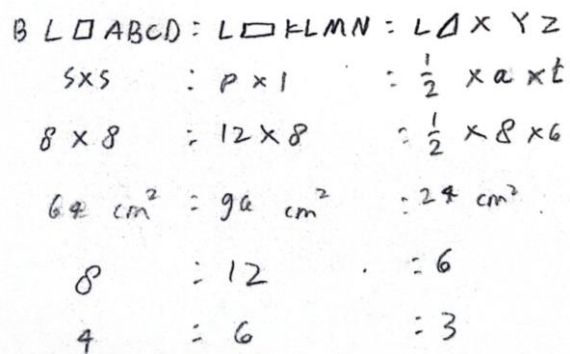 B L □ ABCD : L ▭ KLMN : L △ X Y Z
S x S : P x l : 1/2 x a x t
8 x 8 : 12 x 8 : 1/2 x 8 x 6
64 cm² : 96 cm² : 24 cm².
8 : 12 : 6
4 : 6 : 3